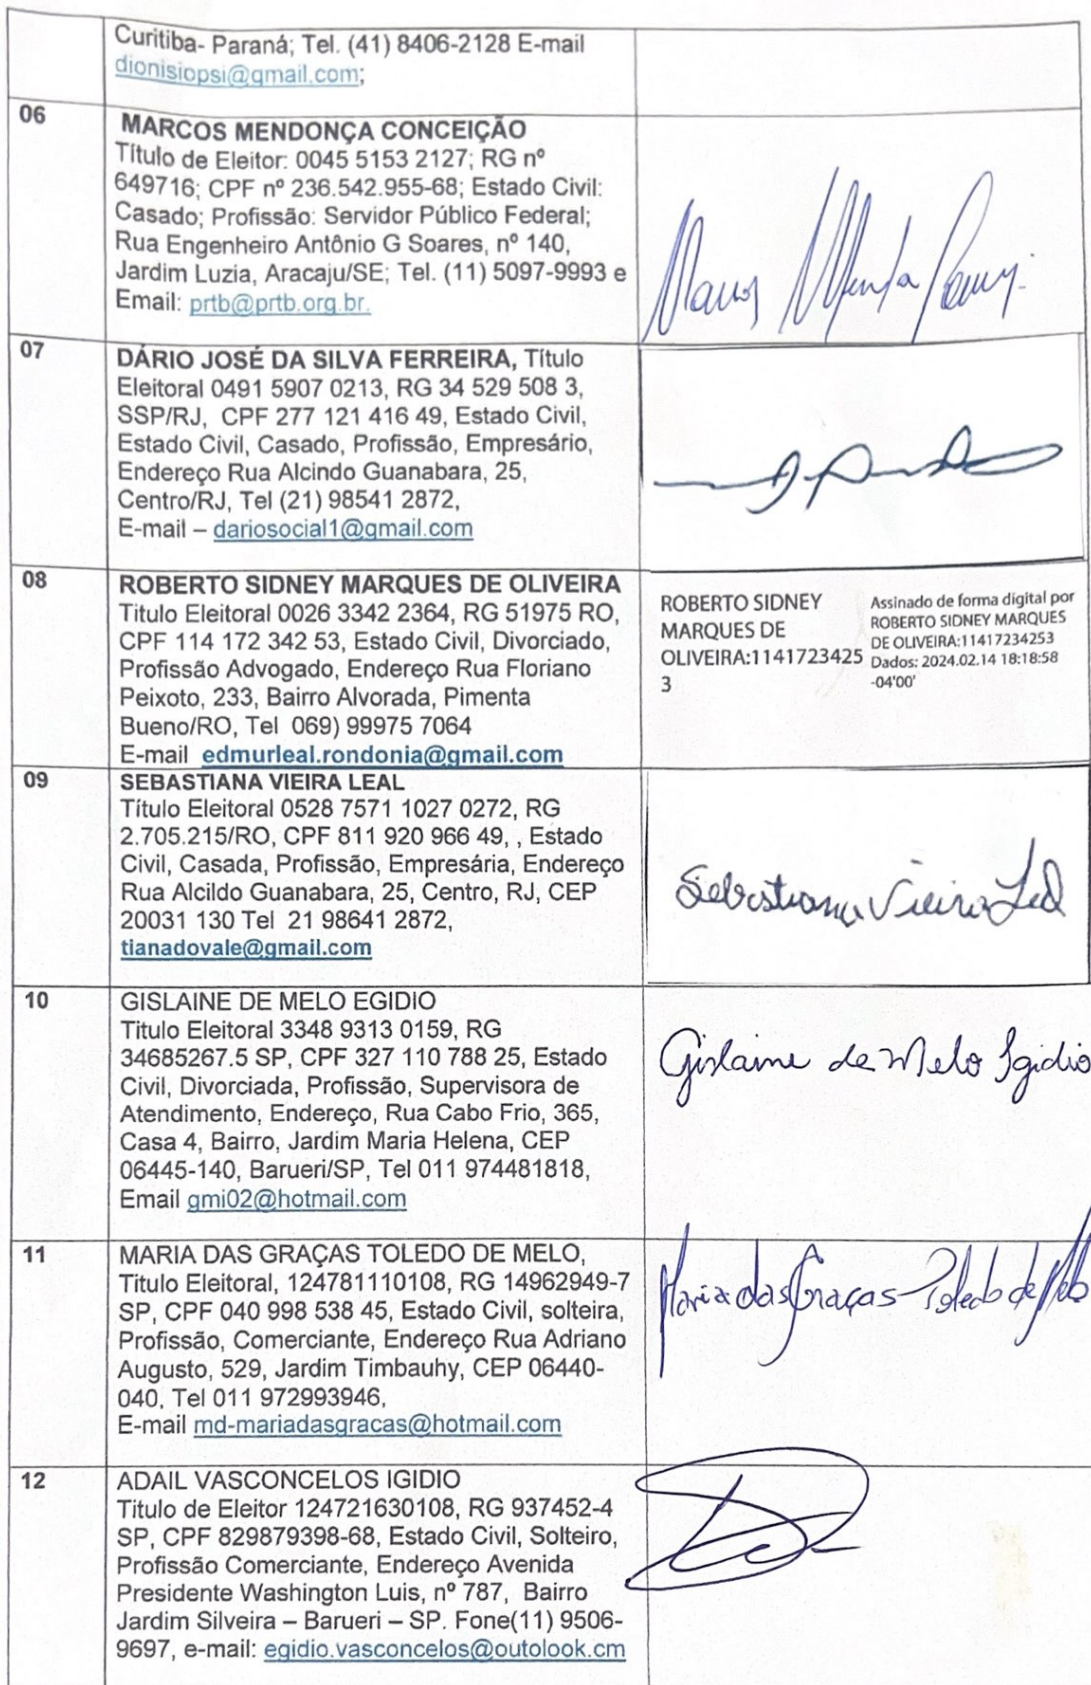 Curitiba- Paraná; Tel. (41) 8406-2128 E-mail
dionisiopsi@gmail.com;
06
MARCOS MENDONÇA CONCEIÇÃO
Título de Eleitor: 0045 5153 2127; RG nº
649716; CPF nº 236.542.955-68; Estado Civil:
Casado; Profissão: Servidor Público Federal;
Rua Engenheiro Antônio G Soares, nº 140,
Jardim Luzia, Aracaju/SE; Tel. (11) 5097-9993 e
Email: prtb@prtb.org.br.
07
DÁRIO JOSÉ DA SILVA FERREIRA, Título
Eleitoral 0491 5907 0213, RG 34 529 508 3,
SSP/RJ, CPF 277 121 416 49, Estado Civil,
Estado Civil, Casado, Profissão, Empresário,
Endereço Rua Alcindo Guanabara, 25,
Centro/RJ, Tel (21) 98541 2872,
E-mail – dariosocial1@gmail.com
08
ROBERTO SIDNEY MARQUES DE OLIVEIRA
Titulo Eleitoral 0026 3342 2364, RG 51975 RO,
CPF 114 172 342 53, Estado Civil, Divorciado,
Profissão Advogado, Endereço Rua Floriano
Peixoto, 233, Bairro Alvorada, Pimenta
Bueno/RO, Tel 069) 99975 7064
E-mail edmurleal.rondonia@gmail.com
ROBERTO SIDNEY
MARQUES DE
OLIVEIRA:1141723425
3
Assinado de forma digital por
ROBERTO SIDNEY MARQUES
DE OLIVEIRA:11417234253
Dados: 2024.02.14 18:18:58
-04'00'
09
SEBASTIANA VIEIRA LEAL
Título Eleitoral 0528 7571 1027 0272, RG
2.705.215/RO, CPF 811 920 966 49, , Estado
Civil, Casada, Profissão, Empresária, Endereço
Rua Alcildo Guanabara, 25, Centro, RJ, CEP
20031 130 Tel 21 98641 2872,
tianadovale@gmail.com
Sebastiana Vieira Leal
10
GISLAINE DE MELO EGIDIO
Titulo Eleitoral 3348 9313 0159, RG
34685267.5 SP, CPF 327 110 788 25, Estado
Civil, Divorciada, Profissão, Supervisora de
Atendimento, Endereço, Rua Cabo Frio, 365,
Casa 4, Bairro, Jardim Maria Helena, CEP
06445-140, Barueri/SP, Tel 011 974481818,
Email gmi02@hotmail.com
Gislaine de Melo Igidio
11
MARIA DAS GRAÇAS TOLEDO DE MELO,
Titulo Eleitoral, 124781110108, RG 14962949-7
SP, CPF 040 998 538 45, Estado Civil, solteira,
Profissão, Comerciante, Endereço Rua Adriano
Augusto, 529, Jardim Timbauhy, CEP 06440-
040, Tel 011 972993946,
E-mail md-mariadasgracas@hotmail.com
Maria das Graças Toledo de Melo
12
ADAIL VASCONCELOS IGIDIO
Titulo de Eleitor 124721630108, RG 937452-4
SP, CPF 829879398-68, Estado Civil, Solteiro,
Profissão Comerciante, Endereço Avenida
Presidente Washington Luis, nº 787, Bairro
Jardim Silveira – Barueri – SP. Fone(11) 9506-
9697, e-mail: egidio.vasconcelos@outolook.cm